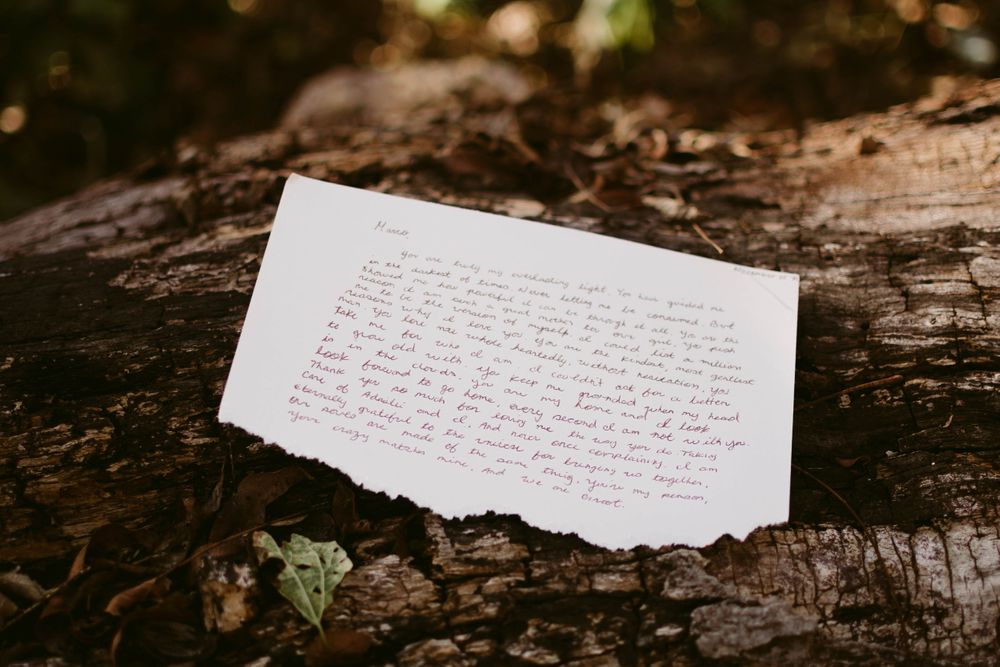 December
Marco
You are truly my everlasting light. You have guided me
in the darkest of times. Never letting me be consumed. But
showed me how powerful I can be through it all. You are the
reason I am such a great mother to our girl. You push
me to be the version of myself I could list a million
reasons why I love you. You are the kindest, most
man. You love me whole heartedly, without hesitation. You
take me for who I am. I couldn't ask for a better
to grow old with. You keep me grounded when my head
is in the clouds. You are my home and I look
look forward to go home every second I am not with you.
Thank you so much for loving me the way you do. Taking
care of and I. And never once complaining. I am
eternally grateful to the for bringing us together.
Our are made of the same thing. You're my person,
your crazy matches mine. And we are Groot.